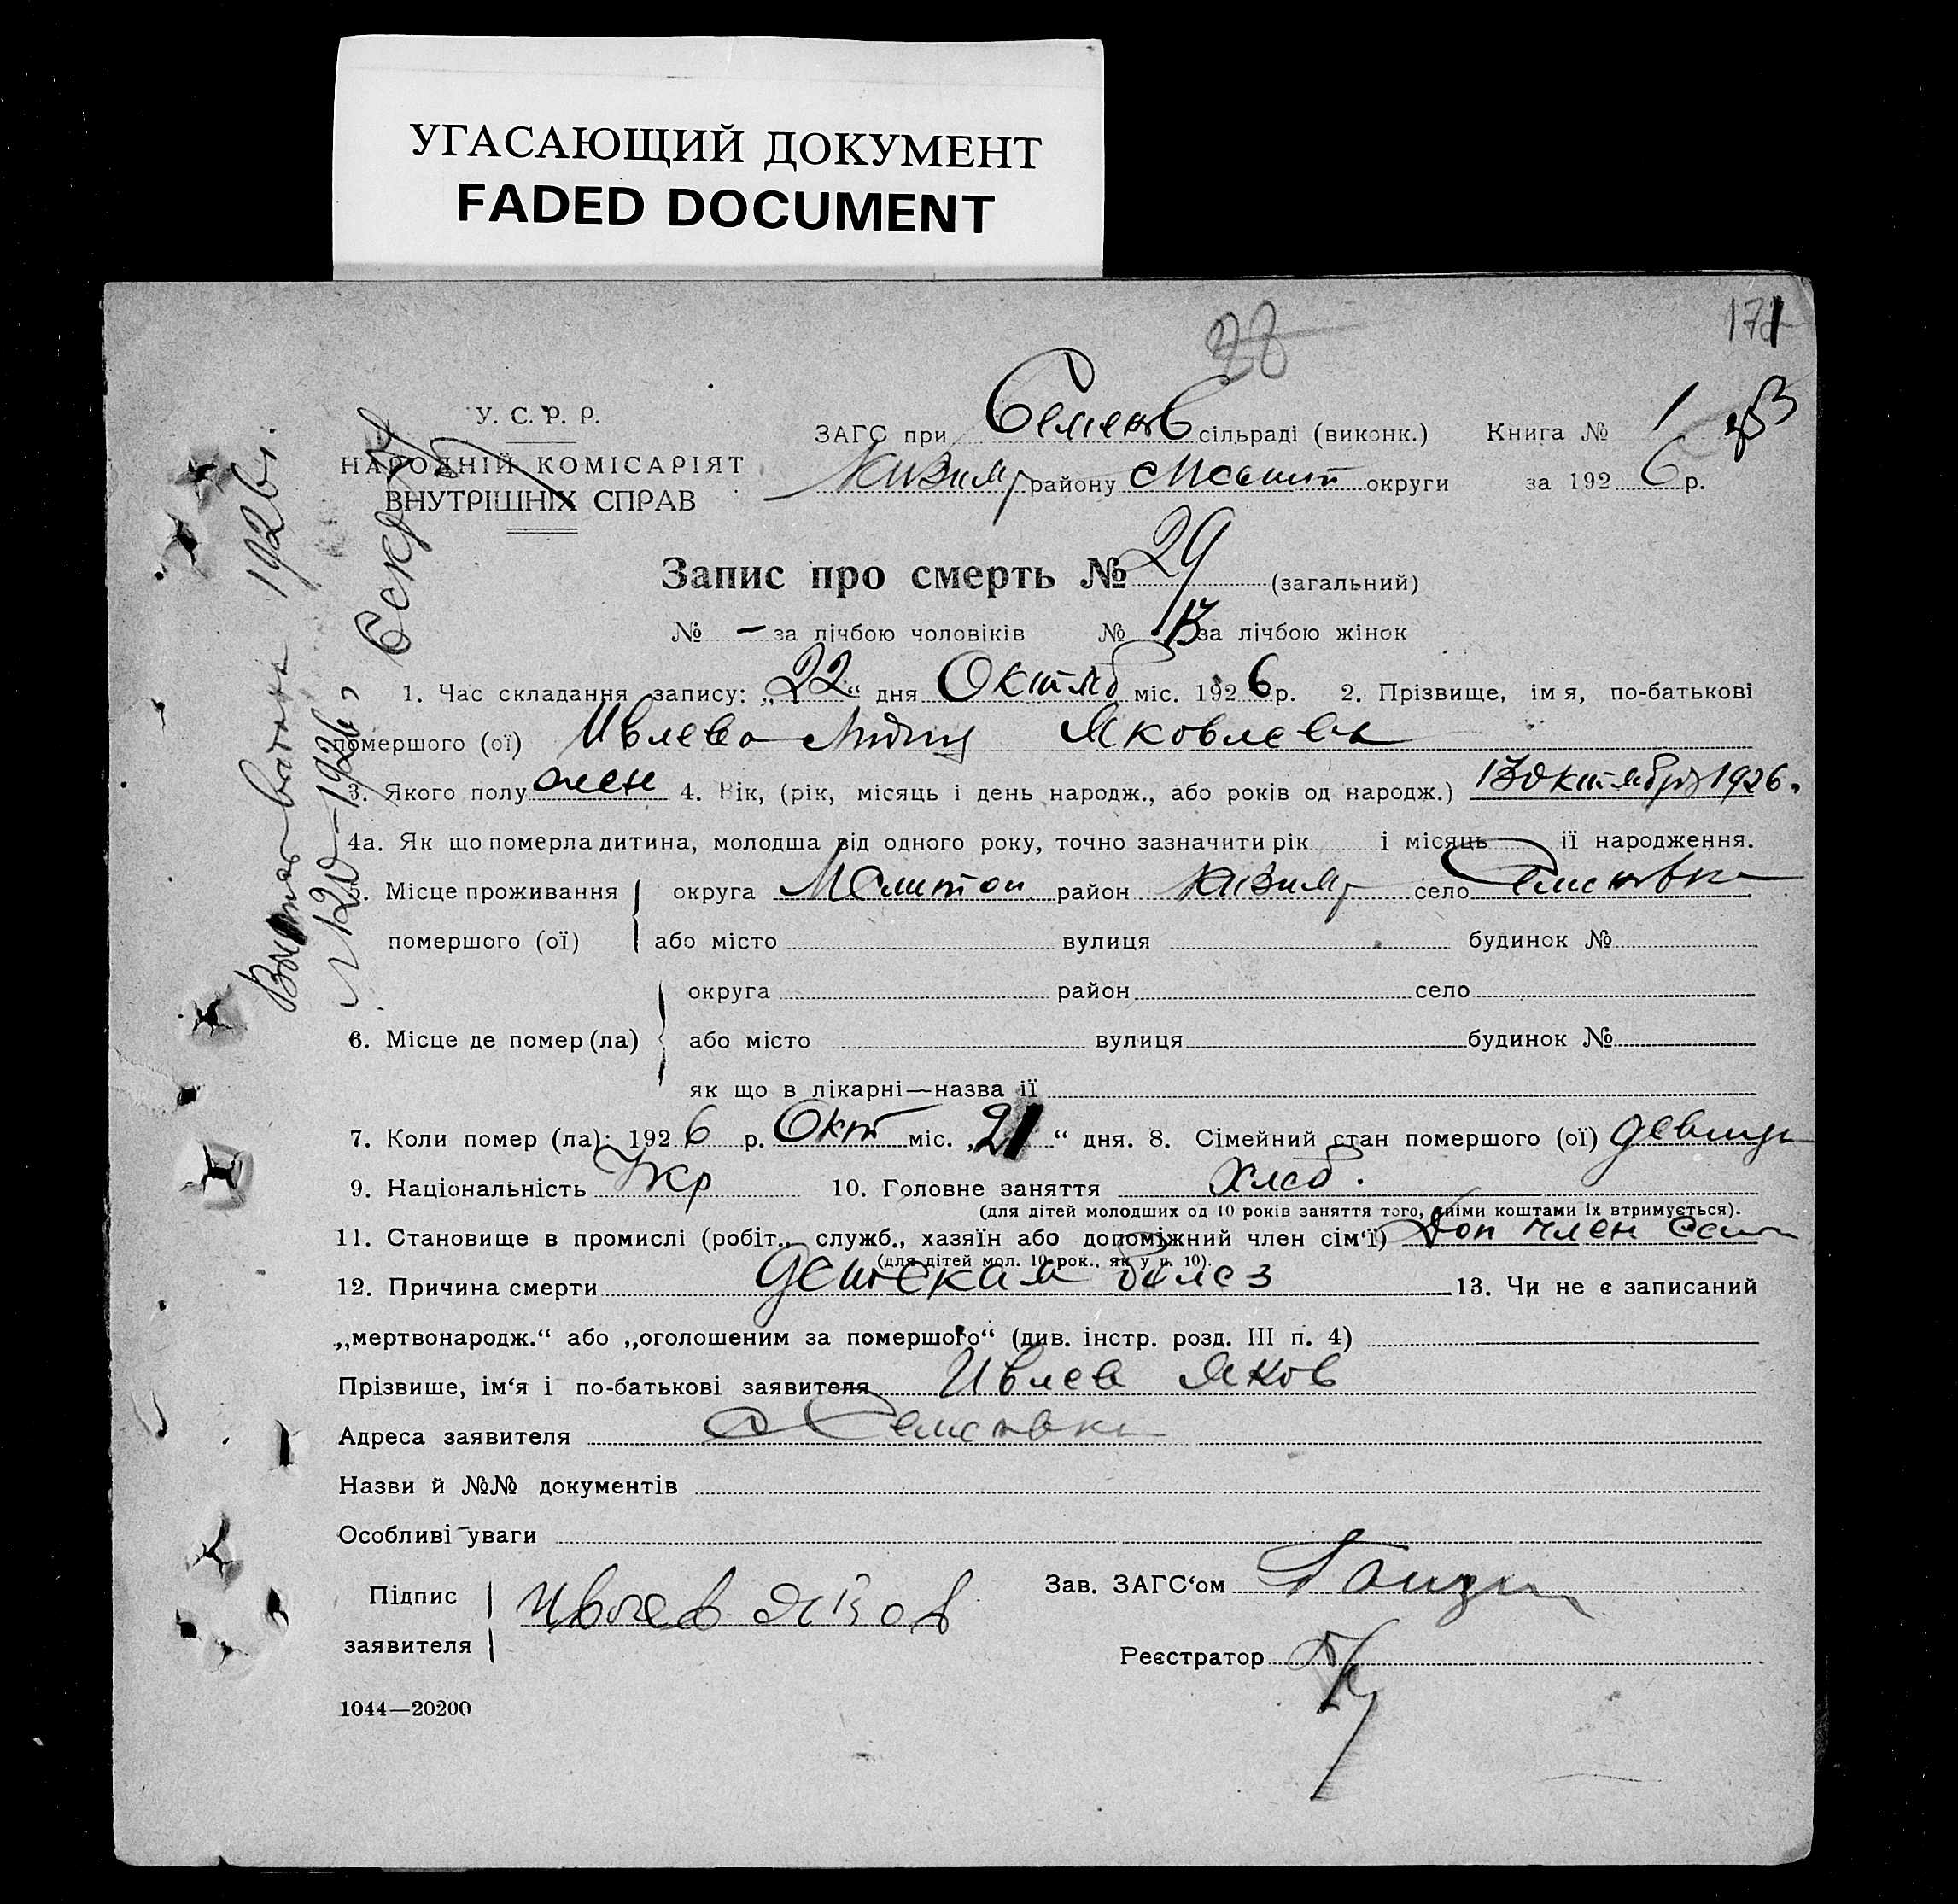 УГАСАЮЩИЙ ДОКУМЕНТ
FADED DOCUMENT
28
171
У. С. Р. Р.
НАРОДНІЙ КОМІСАРІЯТ
ВНУТРІШНІХ СПРАВ
ЗАГС при Семенов сільраді (виконк.) Книга № 1
району округи за 192 6 р.
Запис про смерть № 29 (загальний)
№ — за лічбою чоловіків № 13 за лічбою жінок
1. Час складання запису: „22“ дня Октяб міс. 1926 р. 2. Прізвище, імя, по-батькові
помершого (ої) Ивлева Лидия Яковлева
3. Якого полу жен 4. Вік, (рік, місяць і день народж., або років од народж.) 13 Октября 1926.
4а. Як що померла дитина, молодша від одного року, точно зазначити рік і місяць ії народження.
5. Місце проживання округа Мелитоп район село Семеновка
помершого (ої) або місто вулиця будинок №
округа район село
6. Місце де помер (ла) або місто вулиця будинок №
як що в лікарні—назва ії
7. Коли помер (ла): 1926 р. Окт міс. „21“ дня. 8. Сімейний стан помершого (ої) девица
9. Національність Укр 10. Головне заняття хлеб.
(для дітей молодших од 10 років заняття того, чиїми коштами їх втримується).
11. Становище в промислі (робіт., служб., хазяїн або допоміжний член сім'ї) Доп член сем
(для дітей мол. 10 рок., як у п. 10).
12. Причина смерти Детская болез 13. Чи не є записаний
„мертвонародж.“ або „оголошеним за помершого“ (див. інстр. розд. III п. 4)
Прізвише, ім'я і по-батькові заявителя Ивлев Яков
Адреса заявителя с Семеновка
Назви й №№ документів
Особливі уваги
Підпис
заявителя Ивлев Яков
Зав. ЗАГС'ом
Реєстратор
1044—20200